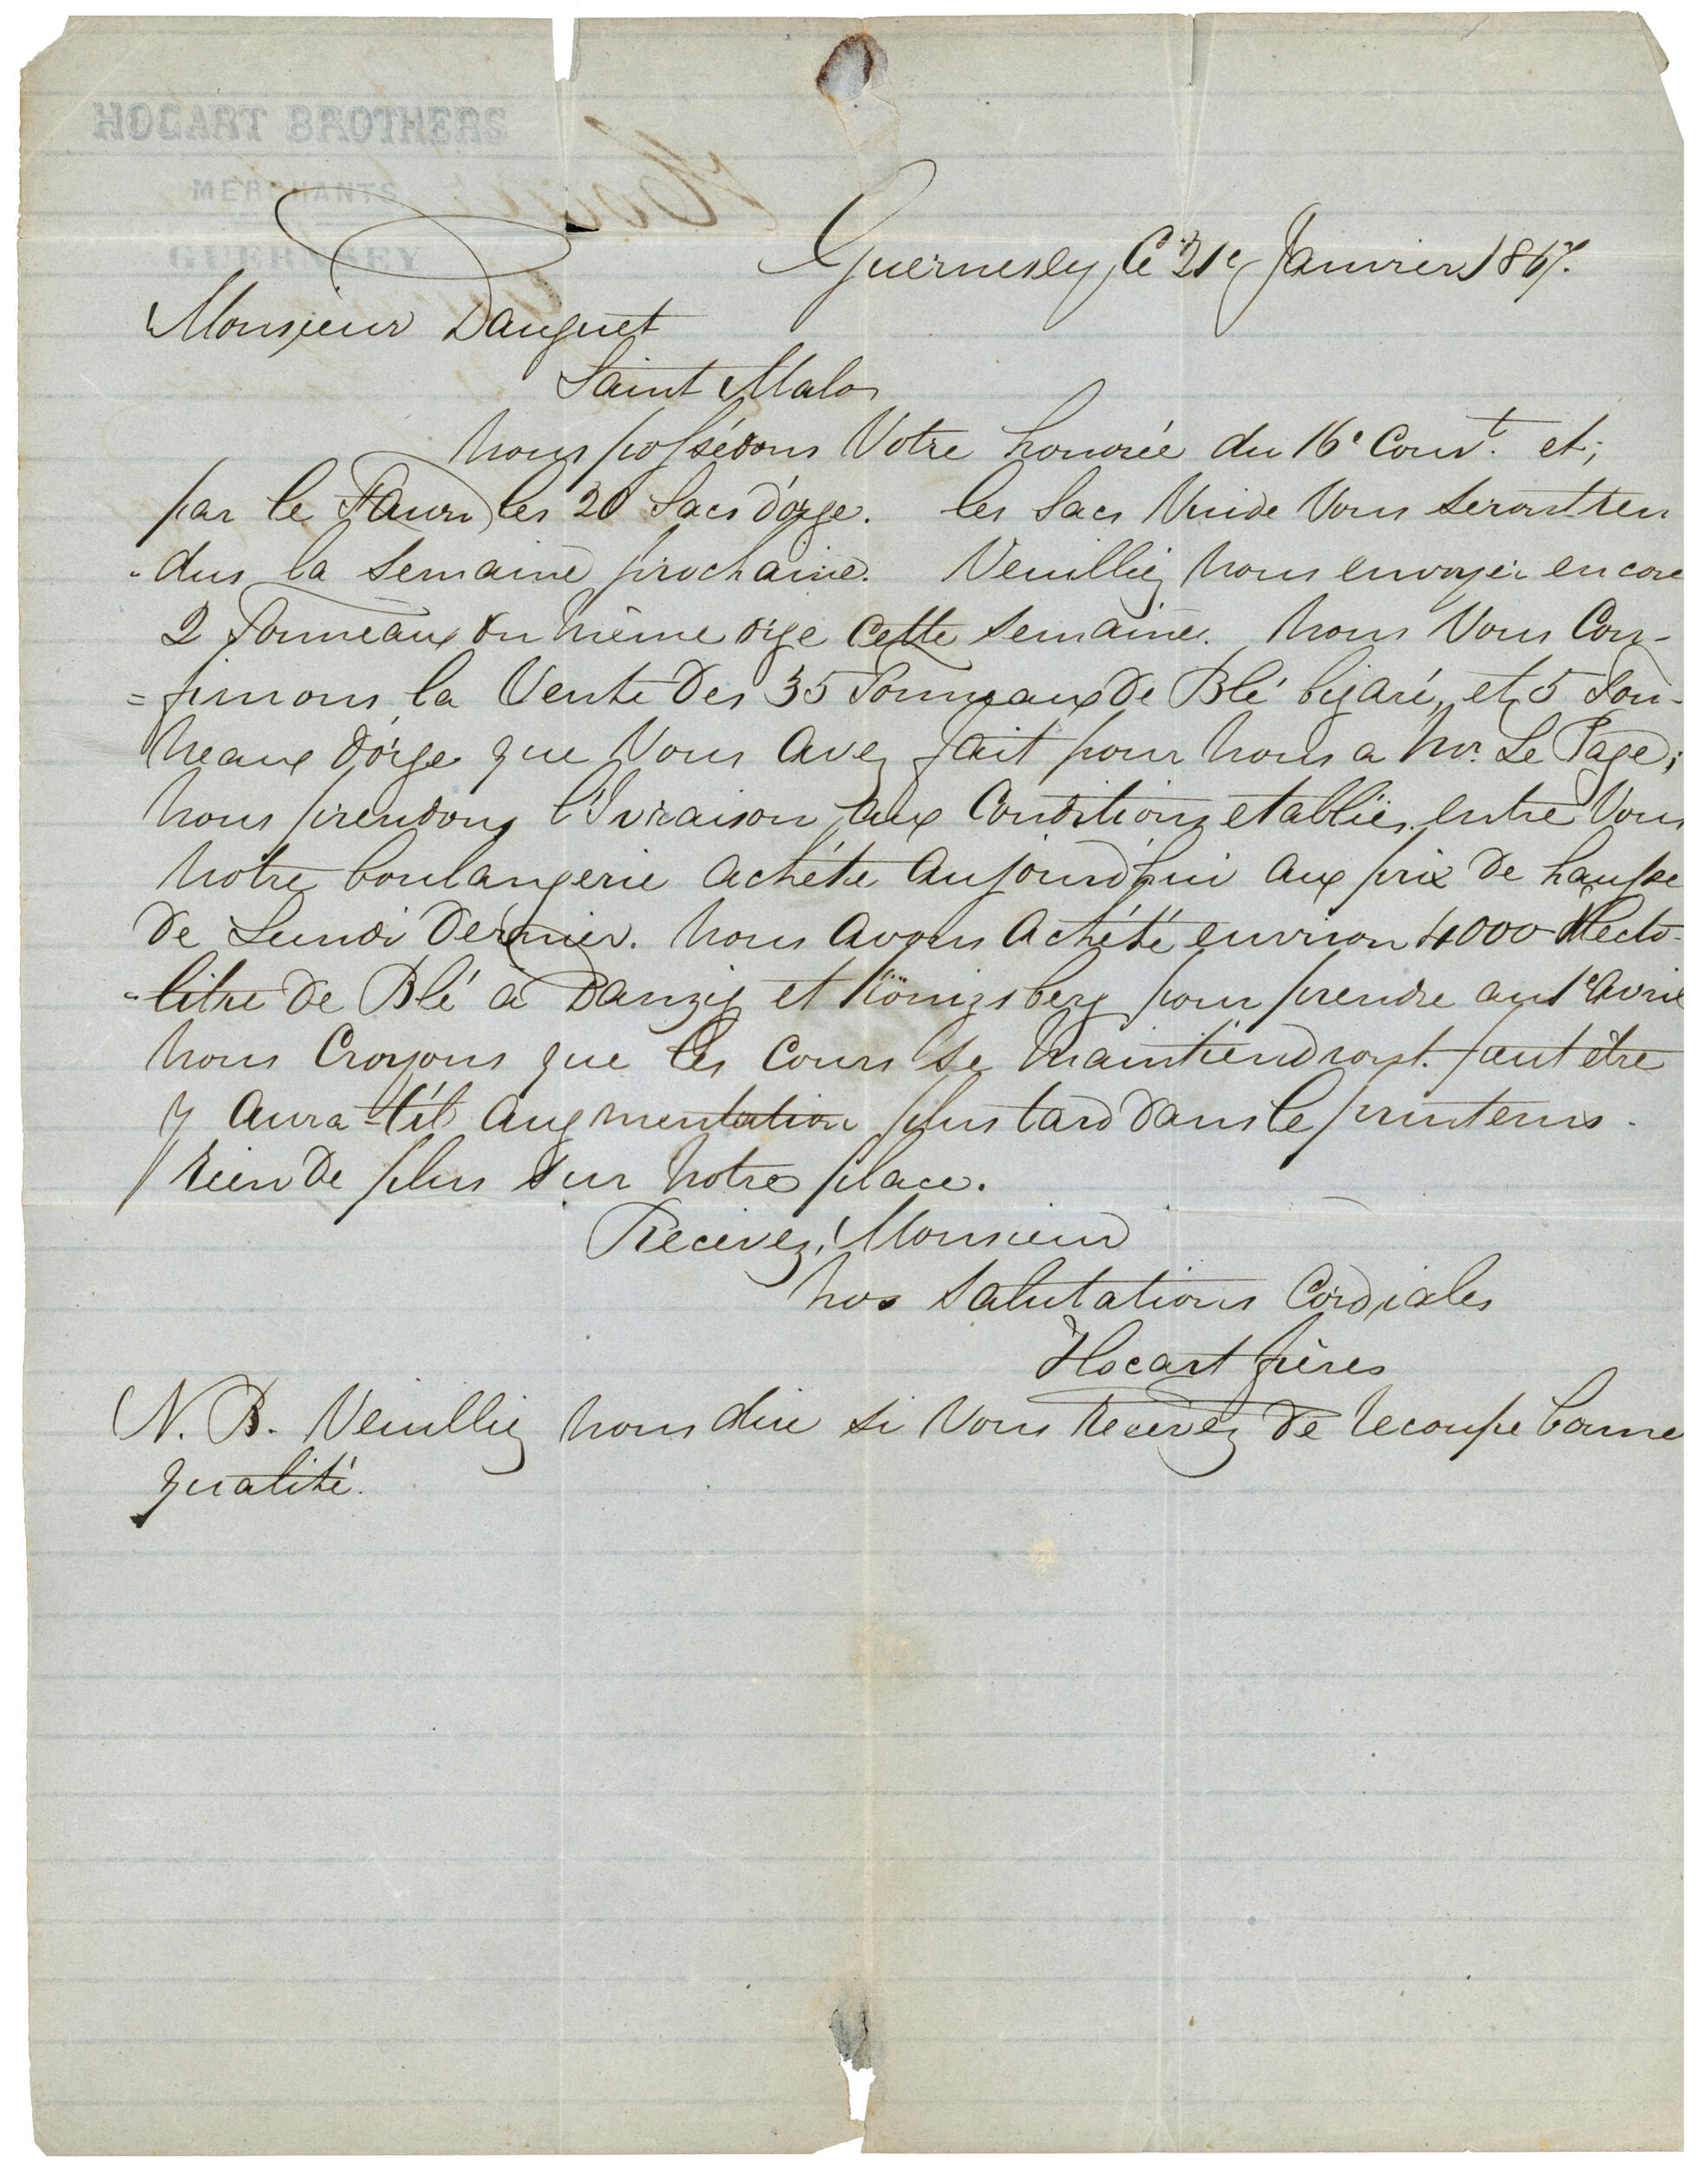 HOCART BROTHERS
MERCHANTS
GUERNSEY
Guernesey, le 21e Janvier 1867.
Monsieur Dauguet
Saint Malo
Nous possédons Votre honorée du 16e Court. et;
par le Fawn, les 20 Sacs d'orge. les Sacs Vuide Vous seront ren
-dus la semaine prochaine. Veuilliez nous envoyer encore
2 Tonneaux du même orge cette semaine. Nous Vous Con-
=firmons la Vente des 35 Tonneaux de Blé bigaré, et 5 Ton-
neaux d'orge que Vous avez fait pour nous a Mr. Le Page;
Nous prendons livraison aux Conditions etablies entre Vous
Notre boulangerie achète aujourd'hui aux prix de hausse
de Lundi dernier. Nous avons achété environ 4000 Hecto-
-litre de Blé à Danzig et Königsberg pour prendre au 1e Avril
Nous Croyons que les Cours se maintiendront. peut être
y aura-t'il augmentation plus tard dans le printems.
rien de plus sur notre place.
Recevez, Monsieur
Nos Salutations Cordiales
Hocart frères
N. B. Veuilliez nous dire si Vous recevez de recoupe bonne
qualité.